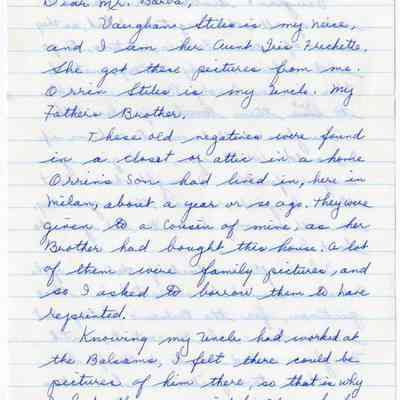 Dear Mr. Barba,
Vaughan Stiles is my niese,
and I am her Aunt Iris Frechette.
She got these pictures from me.
Orrin Stiles is my Uncle. My
Fathers Brother.
These old negatives were found
in a closet or attic in a home
Orrin's Son had lived in, here in
Milan, about a year or so ago. They were
given to a Cousin of mine, as her
Brother had bought this house. A lot
of them were family pictures, and
so I asked to borrow them to have
reprinted.
Knowing my Uncle had worked at
the Balsams, I felt there could be
pictures of him there, so that is why